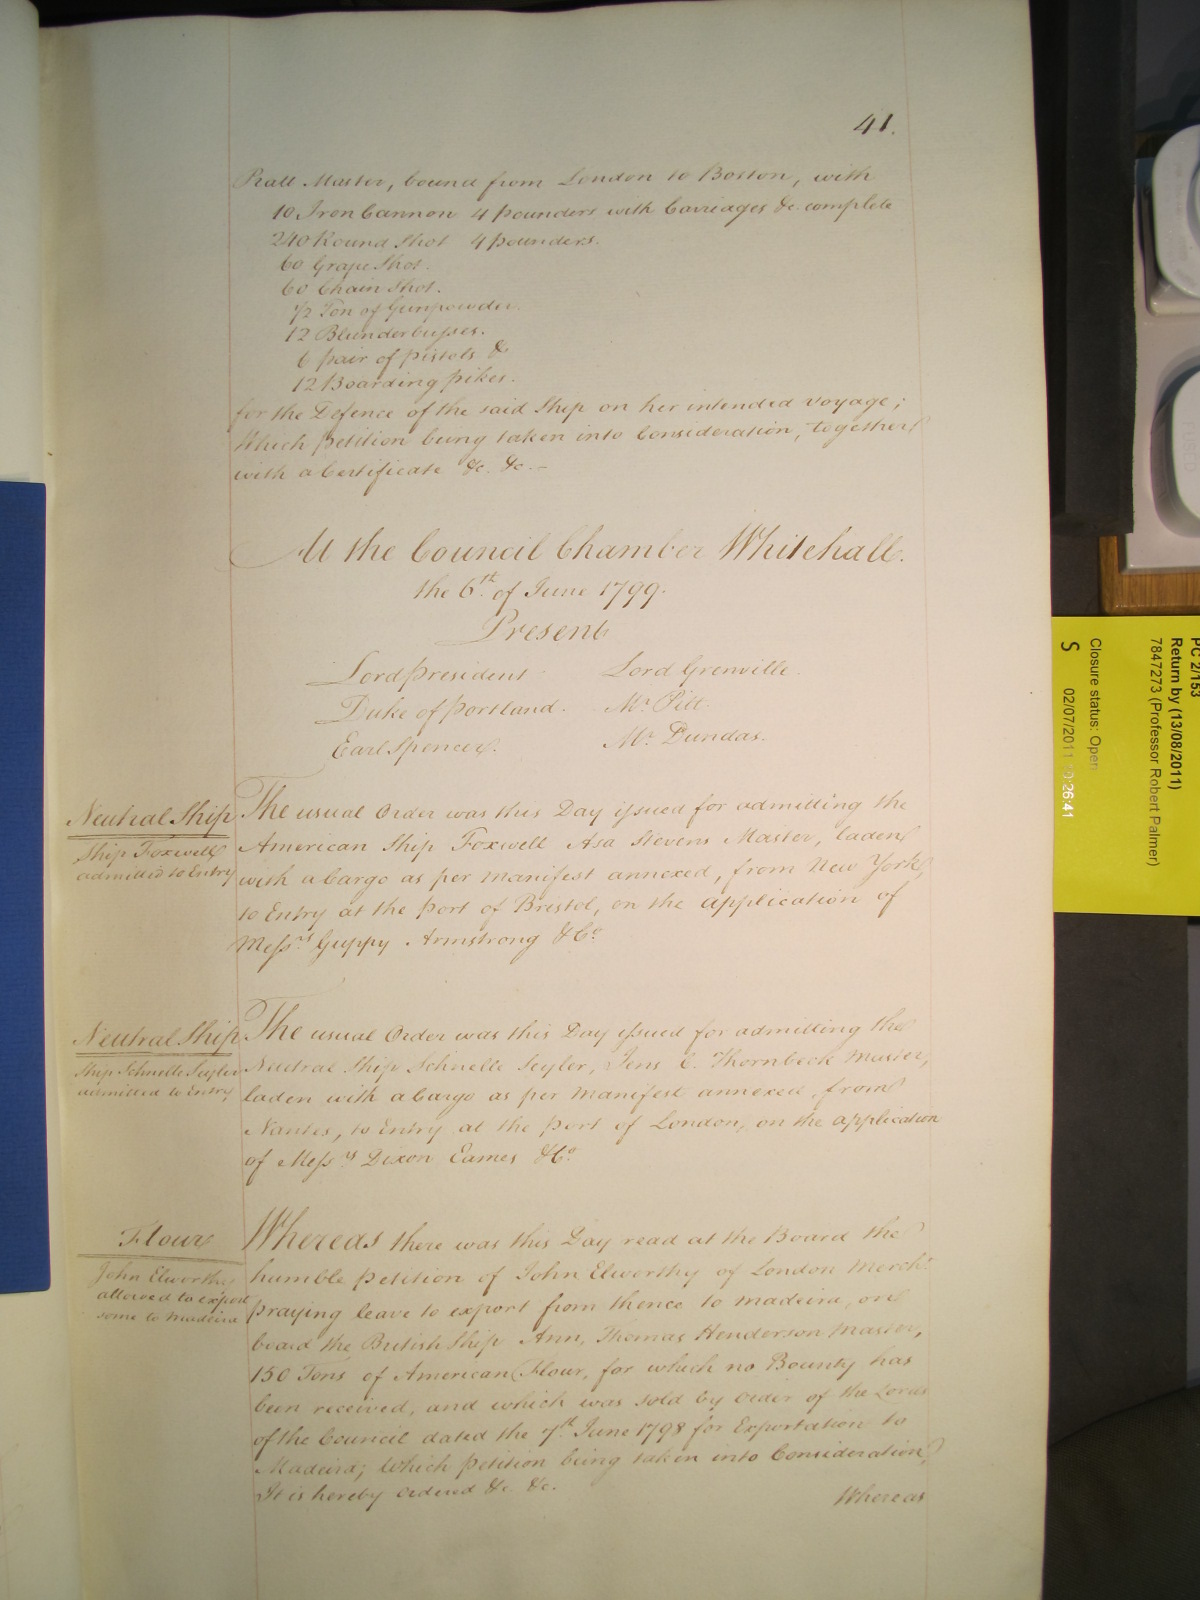 41.
Pratt Master, bound from London to Boston, with
10 Iron Cannon 4 pounders with Carriages &c. complete
240 Round Shot 4 pounders.
60 Grape Shot.
60 Chain Shot.
1/2 Ton of Gunpowder.
12 Blunderbusses.
6 pair of pistols &
12 Boarding pikes.
for the Defence of the said Ship on her intended voyage;
Which petition being taken into Consideration, together
with a Certificate &c. &c. -
At the Council Chamber Whitehall.
the 6th of June 1799.
Present
Lord President Lord Grenville.
Duke of Portland. Mr. Pitt.
Earl Spencer. Mr. Dundas.
Neutral Ship
Ship Foxwell
admitted to Entry
The usual Order was this Day issued for admitting the
American Ship Foxwell Asa Stevens Master, laden
with a Cargo as per Manifest annexed, from New York,
to Entry at the Port of Bristol, on the application of
Messrs Guppy Armstrong & Co.
Neutral Ship
Ship Schnelle Segler
admitted to Entry
The usual Order was this Day issued for admitting the
Neutral Ship Schnelle Segler, Jens C. Thornbeck Master,
laden with a Cargo as per Manifest annexed, from
Nantes, to Entry at the Port of London, on the application
of Messrs Dixon Eames & Co.
Flour
John Elworthy
allowed to export
some to Madeira
Whereas there was this Day read at the Board the
humble petition of John Elworthy of London Mercht.
praying leave to export from thence to Madeira, on
board the British Ship Ann, Thomas Henderson Master,
150 Tons of American Flour, for which no Bounty has
been received, and which was sold by Order of the Lords
of the Council dated the 7th June 1798 for Exportation to
Madeira; Which petition being taken into Consideration,
It is hereby ordered &c. &c.
Whereas
PC 2/153
Return by (13/08/2011)
7847273 (Professor Robert Palmer)
Closure status: Open
S 02/07/2011 10:26:41